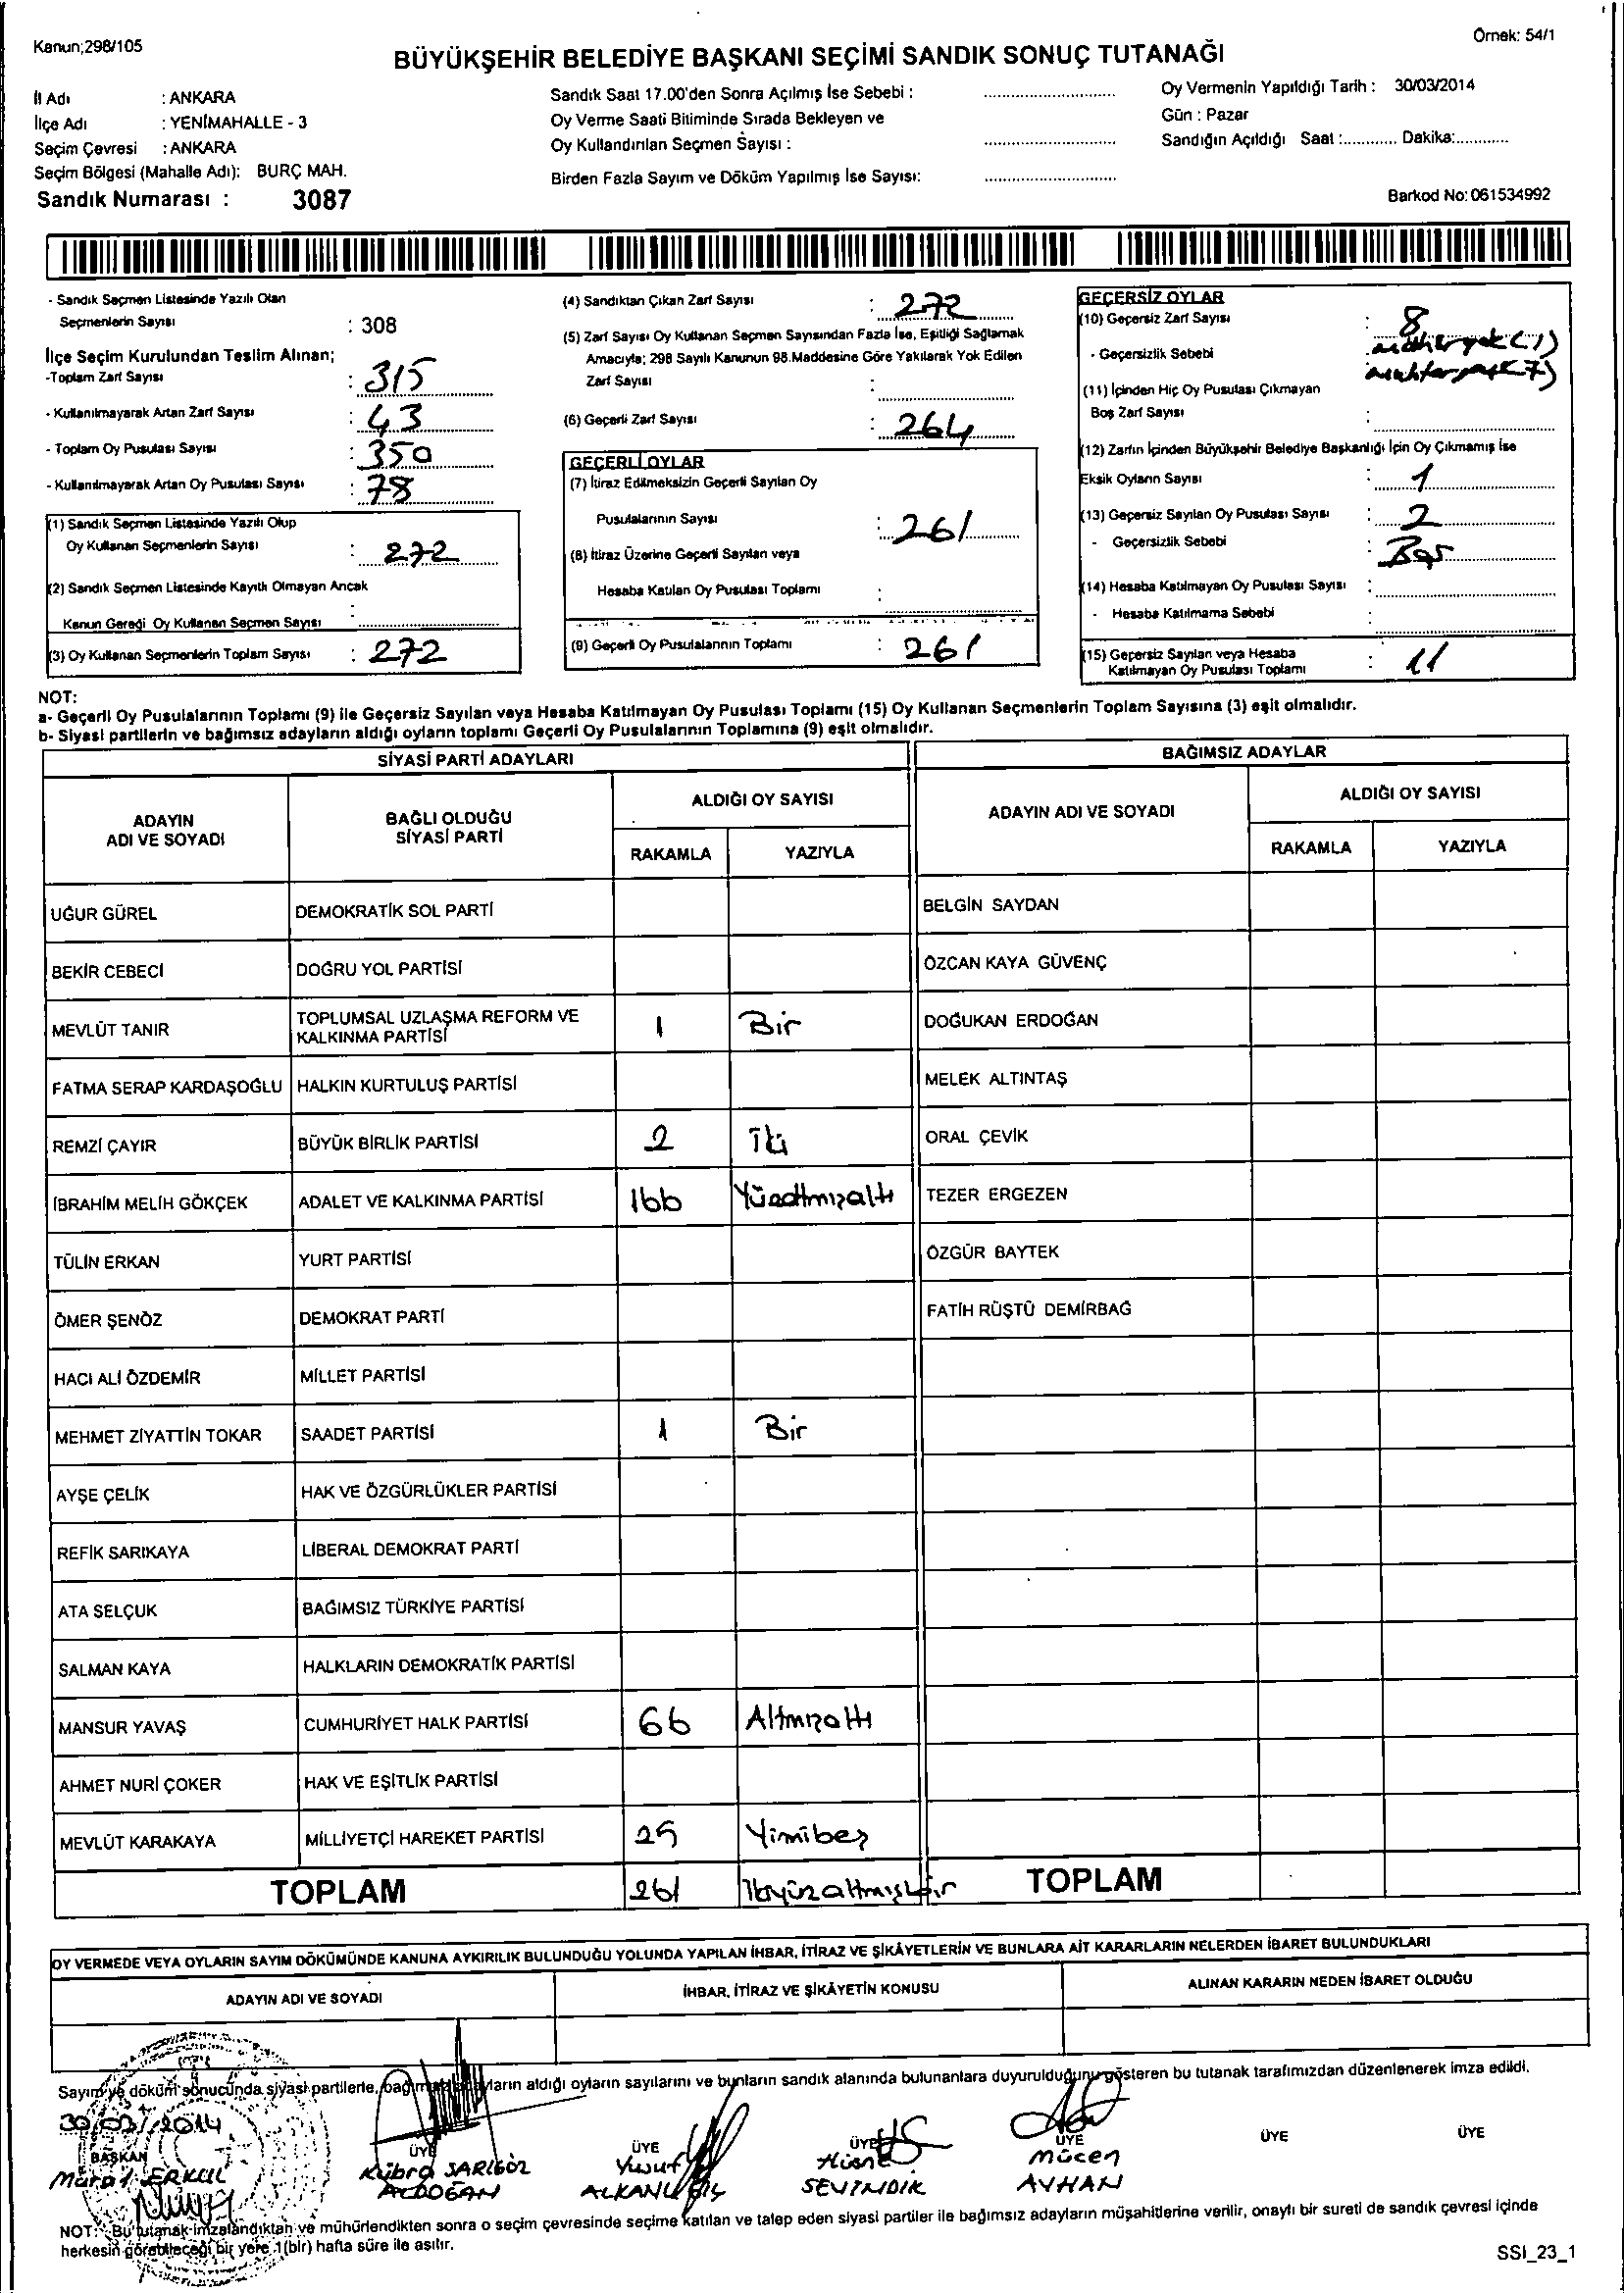 Kanun;298/105
Örnek: 54/1
BÜYÜKŞEHİR BELEDİYE BAŞKANI SEÇİMİ SANDIK SONUÇ TUTANAĞI
İl Adı : ANKARA
İlçe Adı : YENİMAHALLE - 3
Seçim Çevresi : ANKARA
Seçim Bölgesi (Mahalle Adı): BURÇ MAH.
Sandık Numarası : 3087
Sandık Saat 17.00'den Sonra Açılmış İse Sebebi :
Oy Verme Saati Bitiminde Sırada Bekleyen ve
Oy Kullandırılan Seçmen Sayısı :
Birden Fazla Sayım ve Döküm Yapılmış İse Sayısı:
Oy Vermenin Yapıldığı Tarih : 30/03/2014
Gün : Pazar
Sandığın Açıldığı Saat :............ Dakika:............
Barkod No: 061534992
- Sandık Seçmen Listesinde Yazılı Olan
Seçmenlerin Sayısı : 308
İlçe Seçim Kurulundan Teslim Alınan;
-Toplam Zarf Sayısı : 315
- Kullanılmayarak Artan Zarf Sayısı : 43
- Toplam Oy Pusulası Sayısı : 350
- Kullanılmayarak Artan Oy Pusulası Sayısı : 78
(1) Sandık Seçmen Listesinde Yazılı Olup
Oy Kullanan Seçmenlerin Sayısı : 272
(2) Sandık Seçmen Listesinde Kayıtlı Olmayan Ancak
Kanun Gereği Oy Kullanan Seçmen Sayısı :
(3) Oy Kullanan Seçmenlerin Toplam Sayısı : 272
(4) Sandıktan Çıkan Zarf Sayısı : 272
(5) Zarf Sayısı Oy Kullanan Seçmen Sayısından Fazla İse, Eşitliği Sağlamak
Amacıyla; 298 Sayılı Kanunun 98.Maddesine Göre Yakılarak Yok Edilen
Zarf Sayısı :
(6) Geçerli Zarf Sayısı : 264
GEÇERLİ OYLAR
(7) İtiraz Edilmeksizin Geçerli Sayılan Oy
Pusulalarının Sayısı : 261
(8) İtiraz Üzerine Geçerli Sayılan veya
Hesaba Katılan Oy Pusulası Toplamı :
(9) Geçerli Oy Pusulalarının Toplamı : 261
GEÇERSİZ OYLAR
(10) Geçersiz Zarf Sayısı : 8
- Geçersizlik Sebebi : yok (1)
(7)
(11) İçinden Hiç Oy Pusulası Çıkmayan
Boş Zarf Sayısı :
(12) Zarfın İçinden Büyükşehir Belediye Başkanlığı İçin Oy Çıkmamış İse
Eksik Oyların Sayısı : 1
(13) Geçersiz Sayılan Oy Pusulası Sayısı : 2
- Geçersizlik Sebebi : Boş
(14) Hesaba Katılmayan Oy Pusulası Sayısı :
- Hesaba Katılmama Sebebi :
(15) Geçersiz Sayılan veya Hesaba
Katılmayan Oy Pusulası Toplamı : 11
NOT:
a- Geçerli Oy Pusulalarının Toplamı (9) ile Geçersiz Sayılan veya Hesaba Katılmayan Oy Pusulası Toplamı (15) Oy Kullanan Seçmenlerin Toplam Sayısına (3) eşit olmalıdır.
b- Siyasi partilerin ve bağımsız adayların aldığı oyların toplamı Geçerli Oy Pusulalarının Toplamına (9) eşit olmalıdır.
SİYASİ PARTİ ADAYLARI
BAĞIMSIZ ADAYLAR
ADAYIN
ADI VE SOYADI
BAĞLI OLDUĞU
SİYASİ PARTİ
ALDIĞI OY SAYISI
RAKAMLA YAZIYLA
ADAYIN ADI VE SOYADI
ALDIĞI OY SAYISI
RAKAMLA YAZIYLA
UĞUR GÜREL DEMOKRATİK SOL PARTİ BELGİN SAYDAN
BEKİR CEBECİ DOĞRU YOL PARTİSİ ÖZCAN KAYA GÜVENÇ
MEVLÜT TANIR TOPLUMSAL UZLAŞMA REFORM VE KALKINMA PARTİSİ 1 Bir DOĞUKAN ERDOĞAN
FATMA SERAP KARDAŞOĞLU HALKIN KURTULUŞ PARTİSİ MELEK ALTINTAŞ
REMZİ ÇAYIR BÜYÜK BİRLİK PARTİSİ 2 İki ORAL ÇEVİK
İBRAHİM MELİH GÖKÇEK ADALET VE KALKINMA PARTİSİ 166 Yüzatmışaltı TEZER ERGEZEN
TÜLİN ERKAN YURT PARTİSİ ÖZGÜR BAYTEK
ÖMER ŞENÖZ DEMOKRAT PARTİ FATİH RÜŞTÜ DEMİRBAĞ
HACI ALİ ÖZDEMİR MİLLET PARTİSİ
MEHMET ZİYATTİN TOKAR SAADET PARTİSİ 1 Bir
AYŞE ÇELİK HAK VE ÖZGÜRLÜKLER PARTİSİ
REFİK SARIKAYA LİBERAL DEMOKRAT PARTİ
ATA SELÇUK BAĞIMSIZ TÜRKİYE PARTİSİ
SALMAN KAYA HALKLARIN DEMOKRATİK PARTİSİ
MANSUR YAVAŞ CUMHURİYET HALK PARTİSİ 66 Altmışaltı
AHMET NURİ ÇOKER HAK VE EŞİTLİK PARTİSİ
MEVLÜT KARAKAYA MİLLİYETÇİ HAREKET PARTİSİ 25 Yimibeş
TOPLAM 261 İkiyüzaltmışbir TOPLAM
OY VERMEDE VEYA OYLARIN SAYIM DÖKÜMÜNDE KANUNA AYKIRILIK BULUNDUĞU YOLUNDA YAPILAN İHBAR, İTİRAZ VE ŞİKÂYETLERİN VE BUNLARA AİT KARARLARIN NELERDEN İBARET BULUNDUKLARI
ADAYIN ADI VE SOYADI İHBAR, İTİRAZ VE ŞİKÂYETİN KONUSU ALINAN KARARIN NEDEN İBARET OLDUĞU
Sayım ve döküm sonucunda siyasi partilerle, bağımsız adayların aldığı oyların sayılarını ve bunların sandık alanında bulunanlara duyurulduğunu gösteren bu tutanak tarafımızdan düzenlenerek imza edildi.
30/03/2014
BAŞKAN ÜYE ÜYE ÜYE ÜYE ÜYE ÜYE
ERKUL
Kübra SARIGÖZ
Yusuf
SEVİNDİK
Mücen
AYHAN
NOT: Bu tutanak imzalandıktan ve mühürlendikten sonra o seçim çevresinde seçime katılan ve talep eden siyasi partiler ile bağımsız adayların müşahitlerine verilir, onaylı bir sureti de sandık çevresi içinde
herkesin görebileceği bir yere 1(bir) hafta süre ile asılır.
SSI_23_1